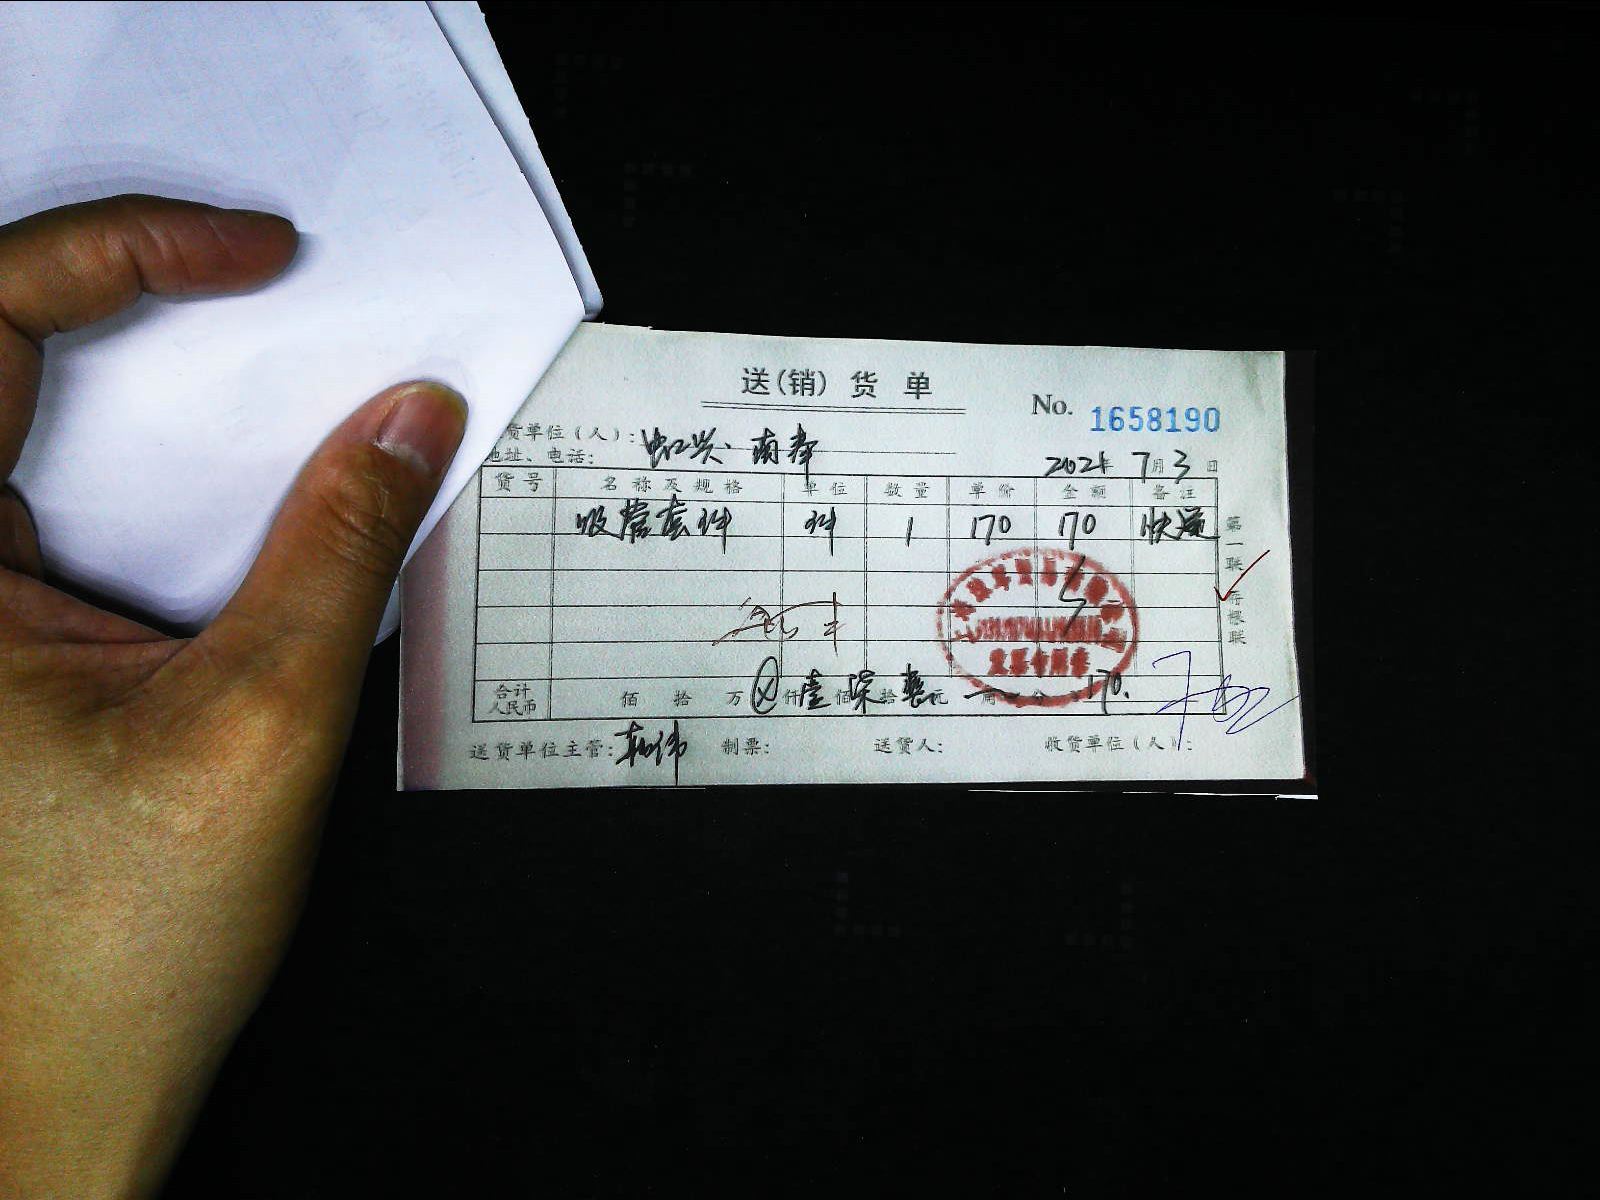 送(销)货单
No. 1658190
货单位(人): 虹兴、南都
地址、电话:
2021年 7月 3日
货号 名称及规格 单位 数量 单价 金额 备注
吸管套件 件 1 170 170 快递
第一联 存根联
合计人民币 佰 拾 万 ⊗仟 壹佰 柒拾 零元 角 分 170.
送货单位主管: 制票: 送货人: 收货单位(人):